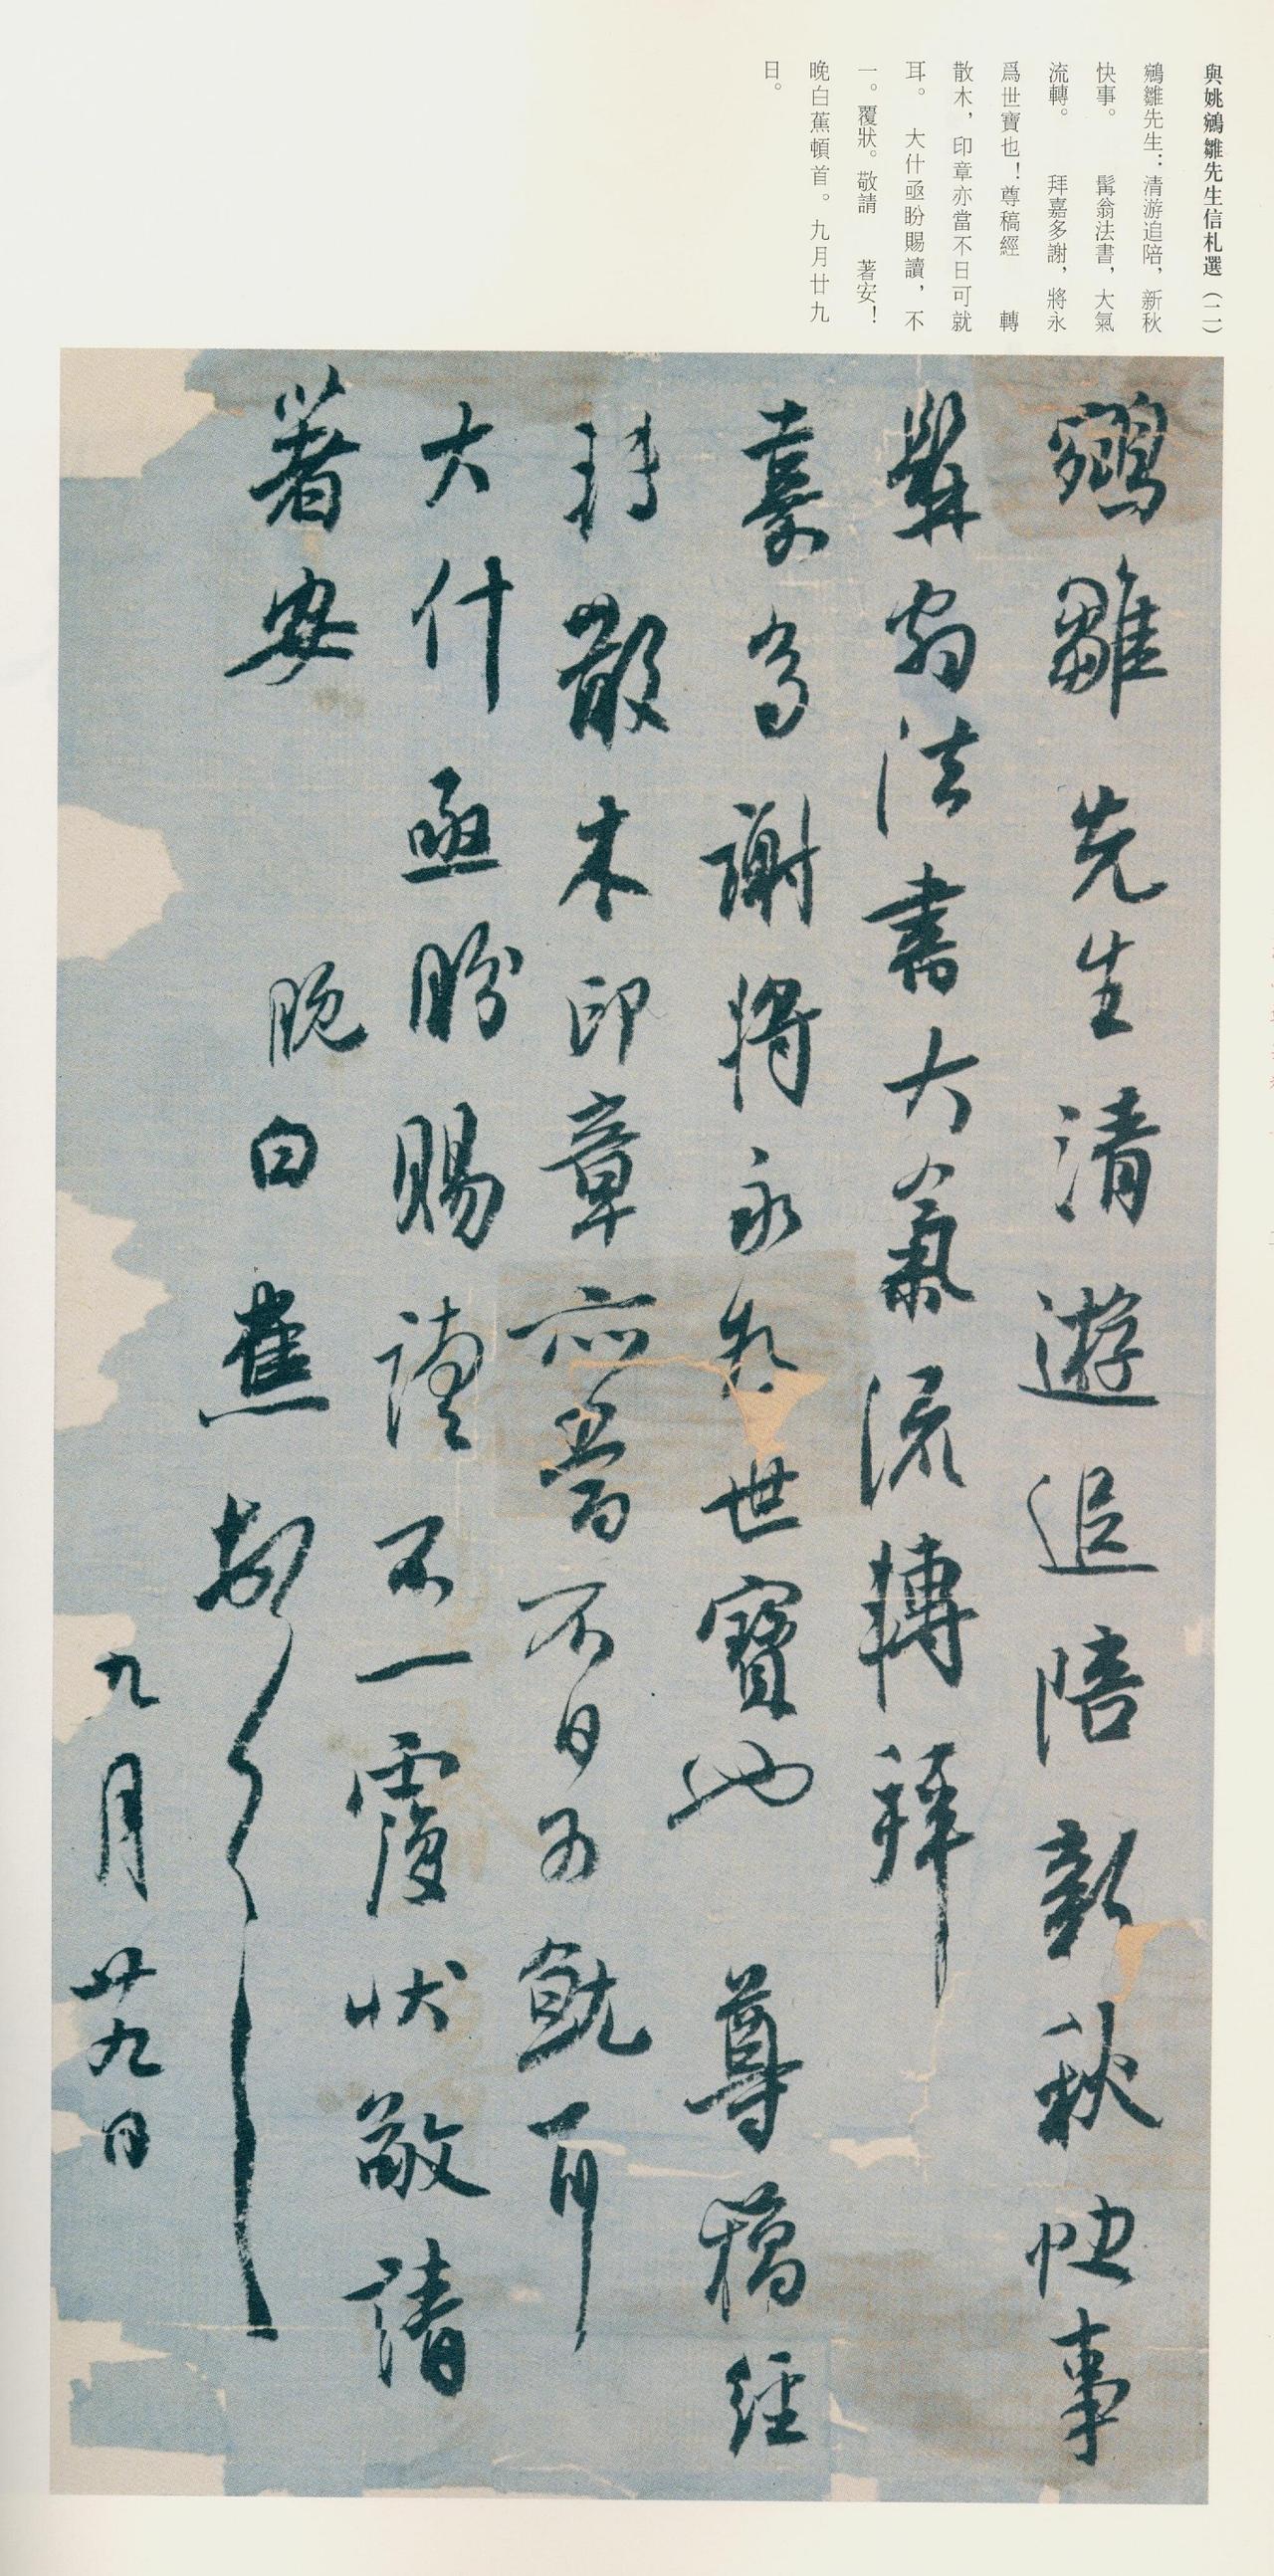 與姚鵷雛先生信札選（二）
鵷雛先生：清游追陪，新秋
快事。　髯翁法書，大氣
流轉。　拜嘉多謝，將永
爲世寶也！尊稿經　轉
散木，印章亦當不日可就
耳。　大什亟盼賜讀，不
一。覆狀。敬請　著安！
晚白蕉頓首。九月廿九
日。
鵷雛先生清遊追陪新秋快事
髯翁法書大氣流轉拜
嘉多謝將永爲世寶也　尊稿經
轉散木印章亦當不日可就耳
大什亟盼賜讀不一覆狀敬請
著安
晚白蕉頓首
九月廿九日